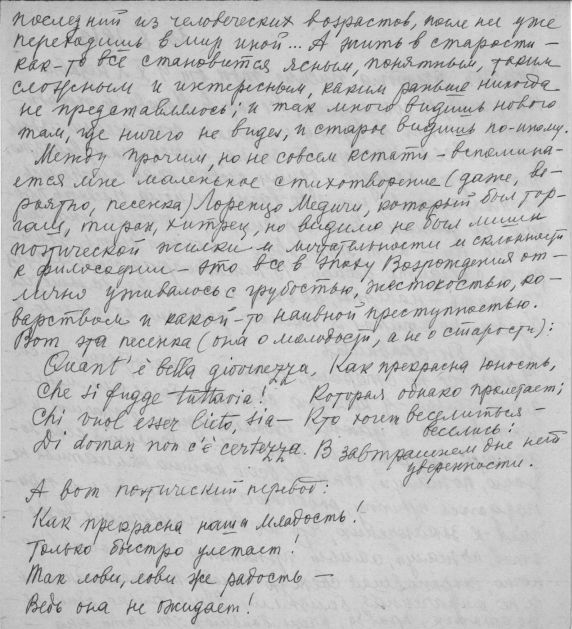 последний из человеческих возрастов, после неё уже
переходишь в мир иной... А жить в старости –
как-то всё становится ясным, понятным, таким
сложным и интересным, каким раньше никогда
не представлялось; и так много видишь нового
там, где ничего не видел, и старое видишь по-иному.
Между прочим, но не совсем кстати – вспомина-
ется мне маленькое стихотворение (даже, ве-
роятно, песенка) Лоренцо Медичи, который был тор-
гаш, тиран, хитрец, но видимо не был лишён
поэтической жилки и мечтательности и склонности
к философии – это все в эпоху Возрождения от-
лично уживалось с грубостью, жестокостью, ко-
варством и какой-то наивной преступностью.
Вот эта песенка (она о молодости, а не о старости):
Quant' è bella giovinezza, Как прекрасна юность,
Che si fugge tuttavia! Которая однако пролетает;
Chi vuol esser lieto, sia – Кто хочет веселиться –
веселись:
Di doman non c'è certezza. В завтрашнем дне нет
уверенности.
А вот поэтический перевод:
Как прекрасна наша младость!
Только быстро улетает!
Так лови, лови же радость –
Ведь она не ожидает!